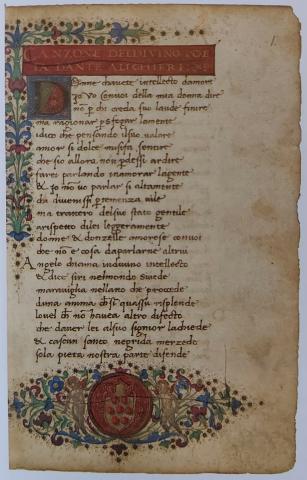 CANZONE DEL DIVINO POE
TA DANTE ALIGHIERI
Donne chavete intellecto damore
Io vo convoi della mia donna dire
non p chi creda sua laude finire
ma ragionar p sfogar lamente
idico che pensando ilsuo valore
amor si dolce misifa sentire
che sio allora non pdessi ardire
farei parlando inamorar lagente
& io no vo parlar si altamente
chi divenissi p temenza vile
ma tractero delsuo stato gentile
arispetto dilei leggeramente
donne & donzelle amorose convoi
che non e cosa daparlarne altrui
Angelo chiama indivino intellecto
& dice siri nelmondo sivede
maraviglia nellacto che procede
duna anima che quassu risplende
lo ciel che non havea altro difecto
che daver lei alsuo signior lachiede
& ciascun sancto negrida merzede
sola pieta nostra parte difende